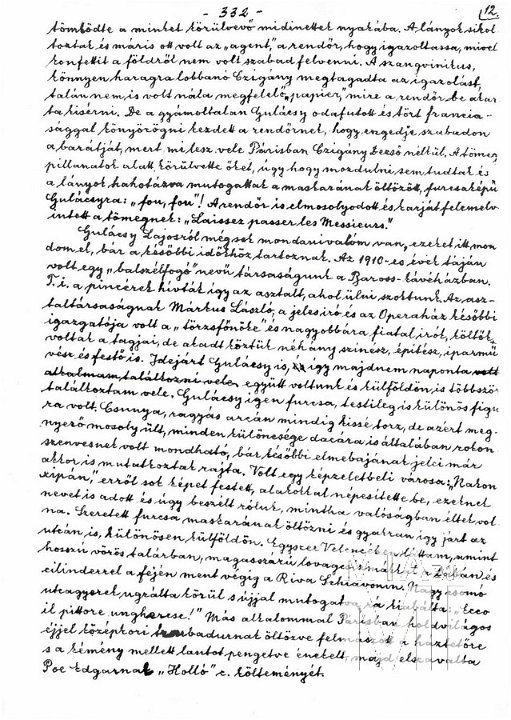 - 332 -
12.
tömködte a minket körülvevő midinettek nyakába. A lányok sikol
toztak és máris ott volt az „agent," a rendőr, hogy igazoltassa, mivel
konfettit a földről nem volt szabad felvenni. A szangvinikus,
könnyen haragra lobbanó Czigány megtagadta az igazolást,
talán nem is volt nála megfelelő „papier," mire a rendőr be akar
ta kisérni. De a gyámoltalan Gulácsy odafutott és tört francia-
sággal könyörögni kezdett a rendőrnek, hogy engedje szabadon
a barátját, mert mi lesz vele Párisban Czigány Dezső nélkül. A tömeg
pillanatok alatt körülvette őket, úgy hogy mozdulni sem tudtak és
a lányok kahotázva mutogattak a maskarának öltözött, furcsaképü
Gulácsyra: „fou, fou"! A rendőr is elmosolyodott és karját felemelve
intett a tömegnek: „Laissez passer les Messieurs."
Gulácsy Lajosról mégsok mondanivalóm van, ezeket itt mon
dom el, bár a későbbi időkhöz tartoznak. Az 1910-es évek táján
volt egy „balszélfogó" nevű társaságunk a Baross-kávéházban.
T.i. a pincérek hívták így az asztalt, ahol ülni szoktunk. Az asz-
taltársaságnak Márkus László, a jeles író és az Operaház későbbi
igazgatója volt a „törzsfőnöke" és nagyobbára fiatal írók, költők
voltak a tagjai, de akadt köztük néhány szinész, építész, iparmü
vész és festő is. Idejárt Gulácsy is, így majdnem naponta
együtt voltunk és külföldön is többször
találkoztam vele. Gulácsy igen furcsa, testileg is különös figu
ra volt. Csunya, ragyás arcán mindig kissé torz, de azért meg-
nyerő mosoly ült, minden különcsége dacára is általában rokon
szenvesnek volt mondható, bár későbbi elmebajának jelei már
akkor is mutatkoztak rajta. Volt egy képzeletbeli városa: „Nakon
xipán," erről sok képet festett, alakokkal népesítette be, ezeknek
nevet is adott és úgy beszélt róluk, mintha valóságban éltek vol
na. Szeretett furcsa maskarának öltözni és gyakran így járt az
utcán is, különösen külföldön. Egyszer Velencében láttam, amint
hosszú vörös talárban, magasszárú lovagcsizmákkal a lábán és
cilinderrel a fején ment végig a Riva Schiavonin. Nagy csomó
utcagyerek ugrálta körül s újjal mutogatva rá kiabálta: „Ecco
il pittore ungherese!" Más alkalommal Párisban holdvilágos
éjjel középkori trubadurnak öltözve felmászott a háztetőre
s a kémény mellett lantot pengetve énekelt, majd elszavalta
Poe Edgarnak „Holló" c. költeményét.